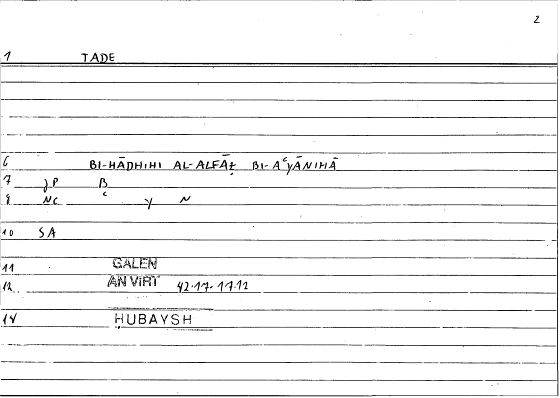 2
1 TADE
6 BI-HĀDHIHI AL-ALFĀẒ BI-AʿYĀNIHĀ
7 JP B
8 NC ʿ Y N
10 SA
11 GALEN
12 AN VIRT 42.17-17.12
14 ḤUBAYSH